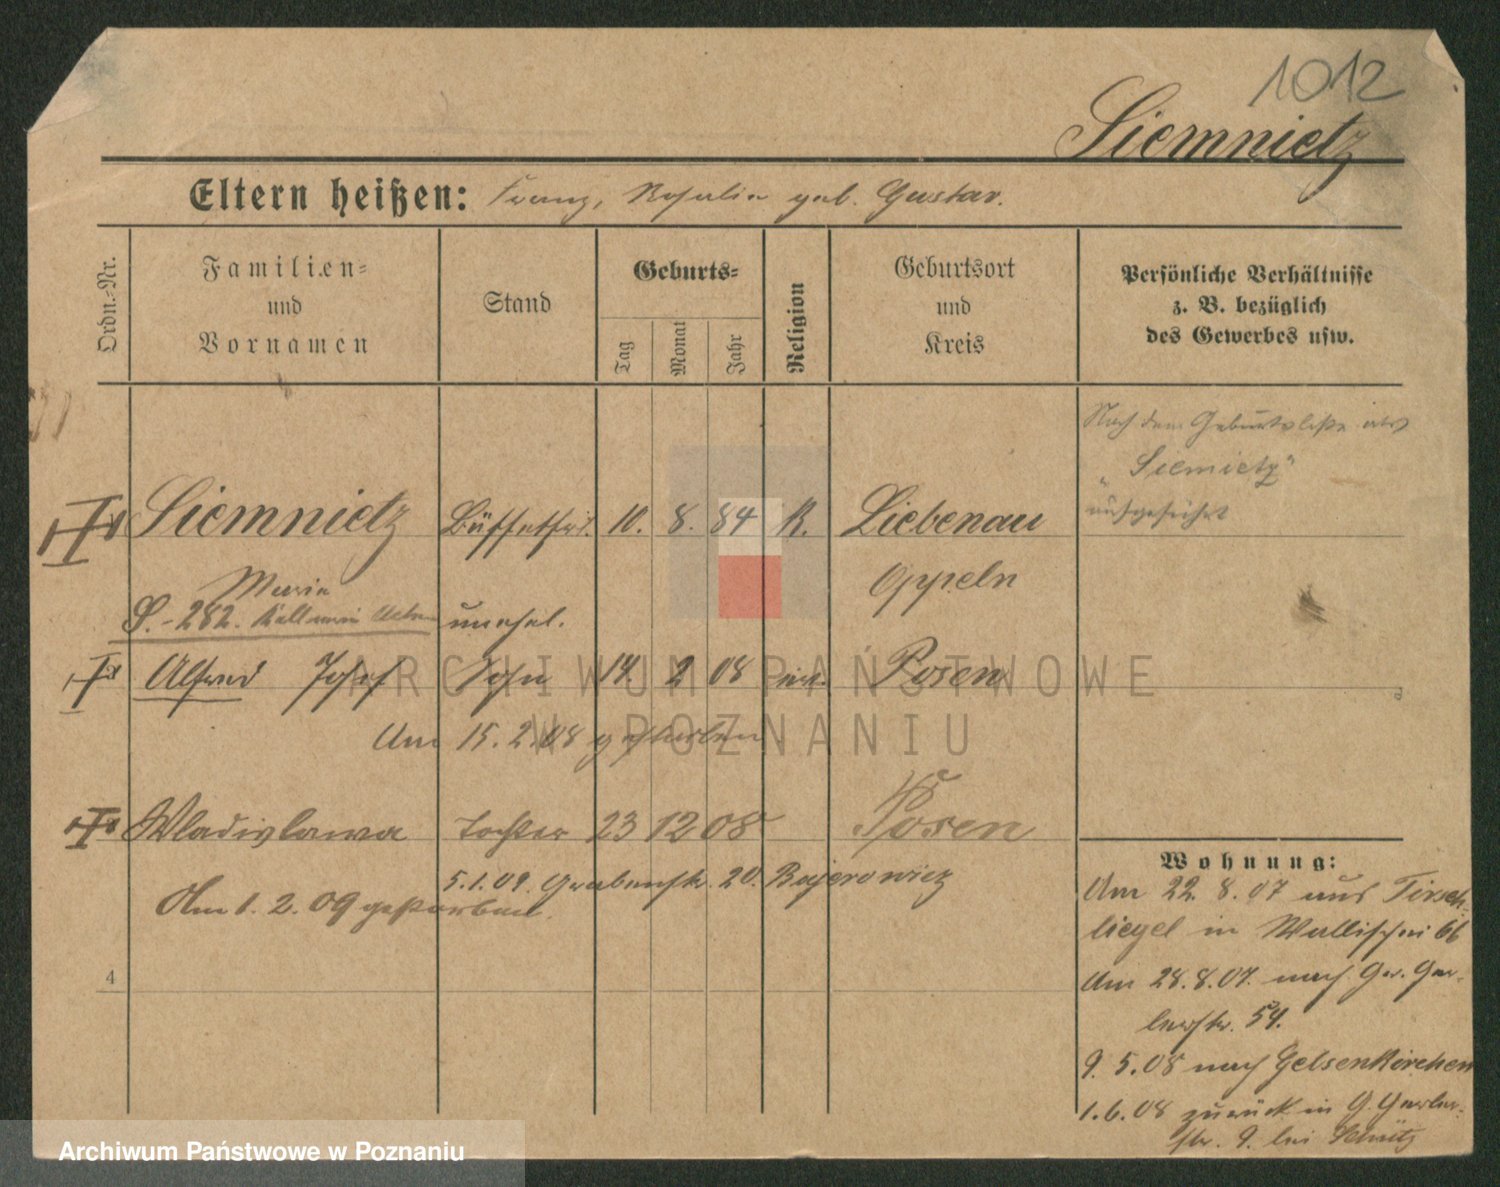 1012
Siemnietz
Eltern heißen: Franz, Rosalie geb. Gustav.
Ordn.-Nr.
Familien-
und
Vornamen
Stand
Geburts-
Tag
Monat
Jahr
Religion
Geburtsort
und
Kreis
Persönliche Verhältnisse
z. B. bezüglich
des Gewerbes usw.
Nach dem Geburts als
"Siemietz"
aufgeführt
Siemnietz Büffetfrl. 10. 8. 84 K. Liebenau
Marie Oppeln
S.-282. unehel.
Alfred Josef Sohn 14. 2 08 Posen
Am 15.2.08 gestorben
Wladislawa Tochter 23 12 08 Posen
5.1.09. Grabenstr. 20. Bajerowicz
Am 1. 2. 09 gestorben.
4
Wohnung:
Am 22. 8. 07 aus Tirsch-
tiegel in Wallischei 66
Am 28.8.07. nach Gr. Ger-
berstr. 54.
9. 5.08 nach Gelsenkirchen
1.6.08 zurück in G. Gerber-
str. 9. bei Schütz
ARCHIWUM PAŃSTWOWE
W POZNANIU
Archiwum Państwowe w Poznaniu